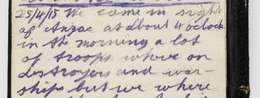 25/4/15 We came in sight
of Anzac at about 4 oclock
in the morning a lot
of troops where on
destroyers and war-
ships but we where